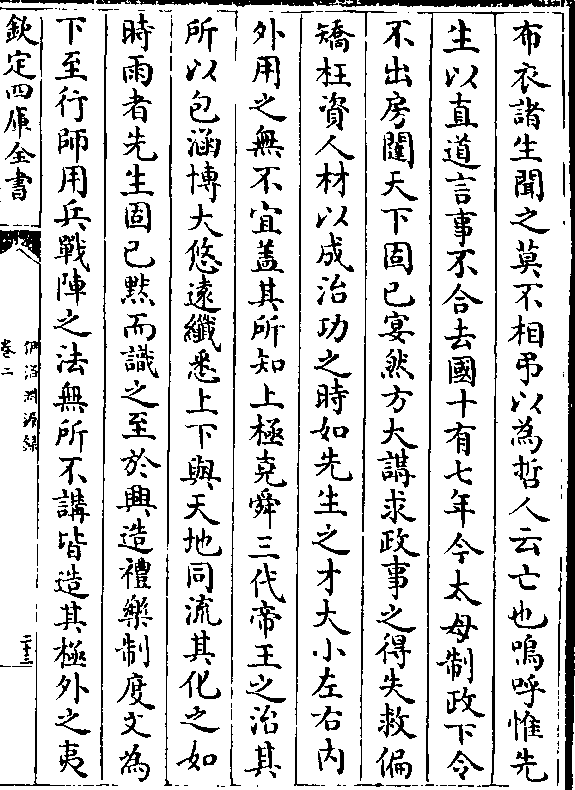 布衣諸生聞之莫不相弔以為哲人云亡也嗚呼惟先
生以直道言事不合去國十有七年今太母制政下令
不出房闥天下固已宴然方大講求政事之得失救偏
矯枉資人材以成治功之時如先生之才大小左右内
外用之無不宜蓋其所知上極堯舜三代帝王之治其
所以包涵博大悠遠纖悉上下與天地同流其化之如
時雨者先生固已黙而識之至於興造禮樂制度文為
下至行師用兵戰陣之法無所不講皆造其極外之夷
欽定四庫全書
伊洛淵源録
卷二
二十三